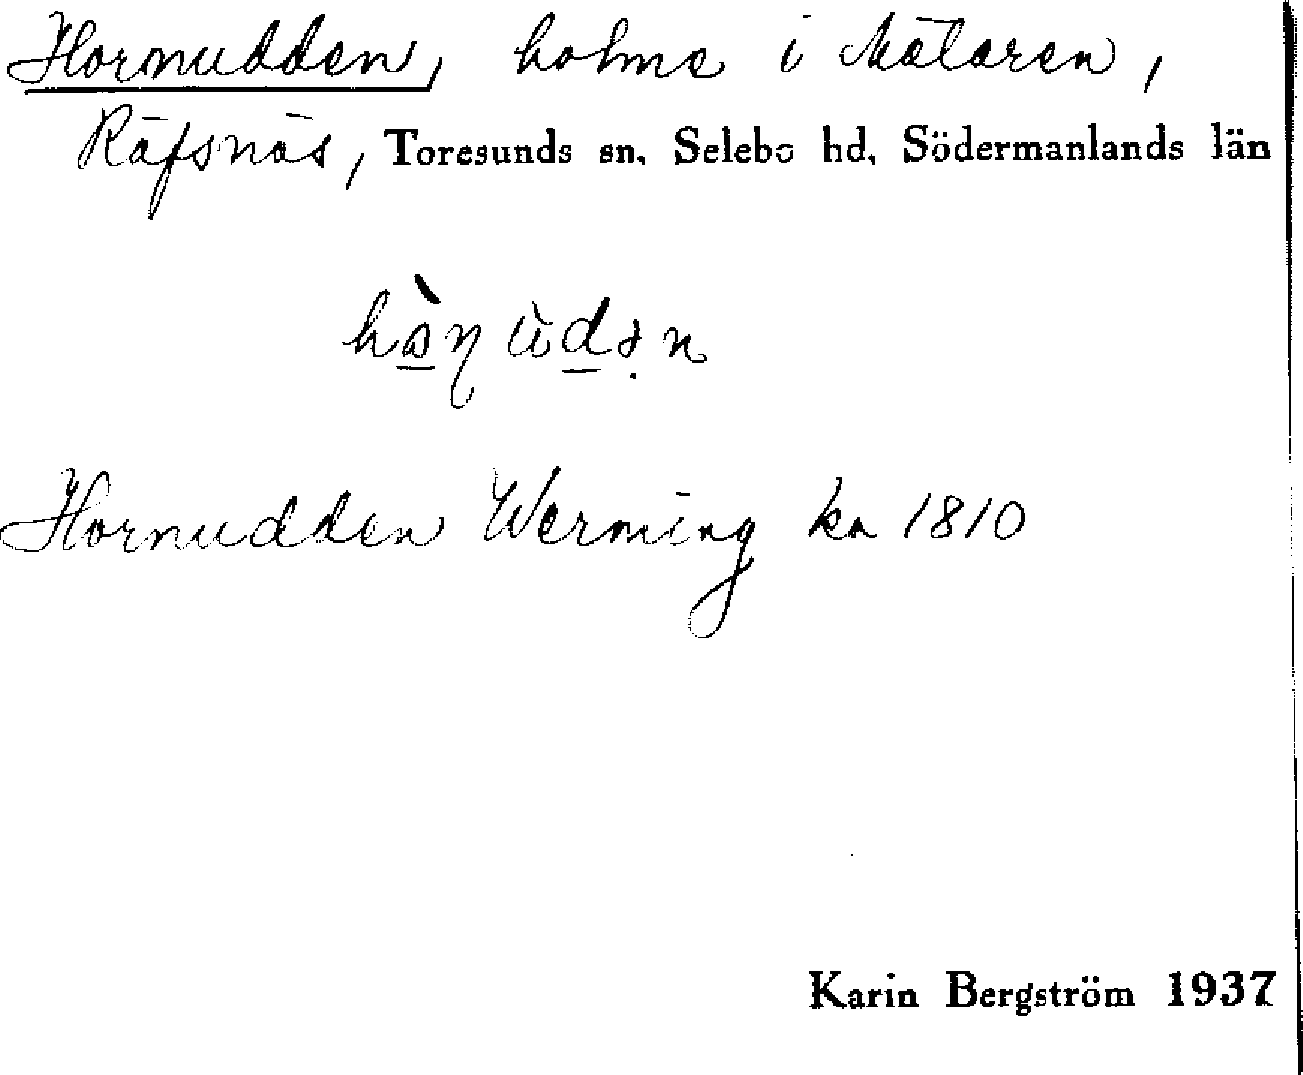 Hornudden, holme i Mälaren,
Räfsnäs, Toresunds sn. Selebo hd. Södermanlands län
Hornudden Werming ka 1810
Karin Bergström 1937